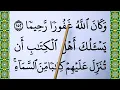 وَكَانَ اللَّهُ غَفُورًا رَّحِيمًا ١٥٢
يَسْـَٔلُكَ أَهْلُ الْكِتَٰبِ أَن
تُنَزِّلَ عَلَيْهِمْ كِتَٰبًا مِّنَ السَّمَآءِ